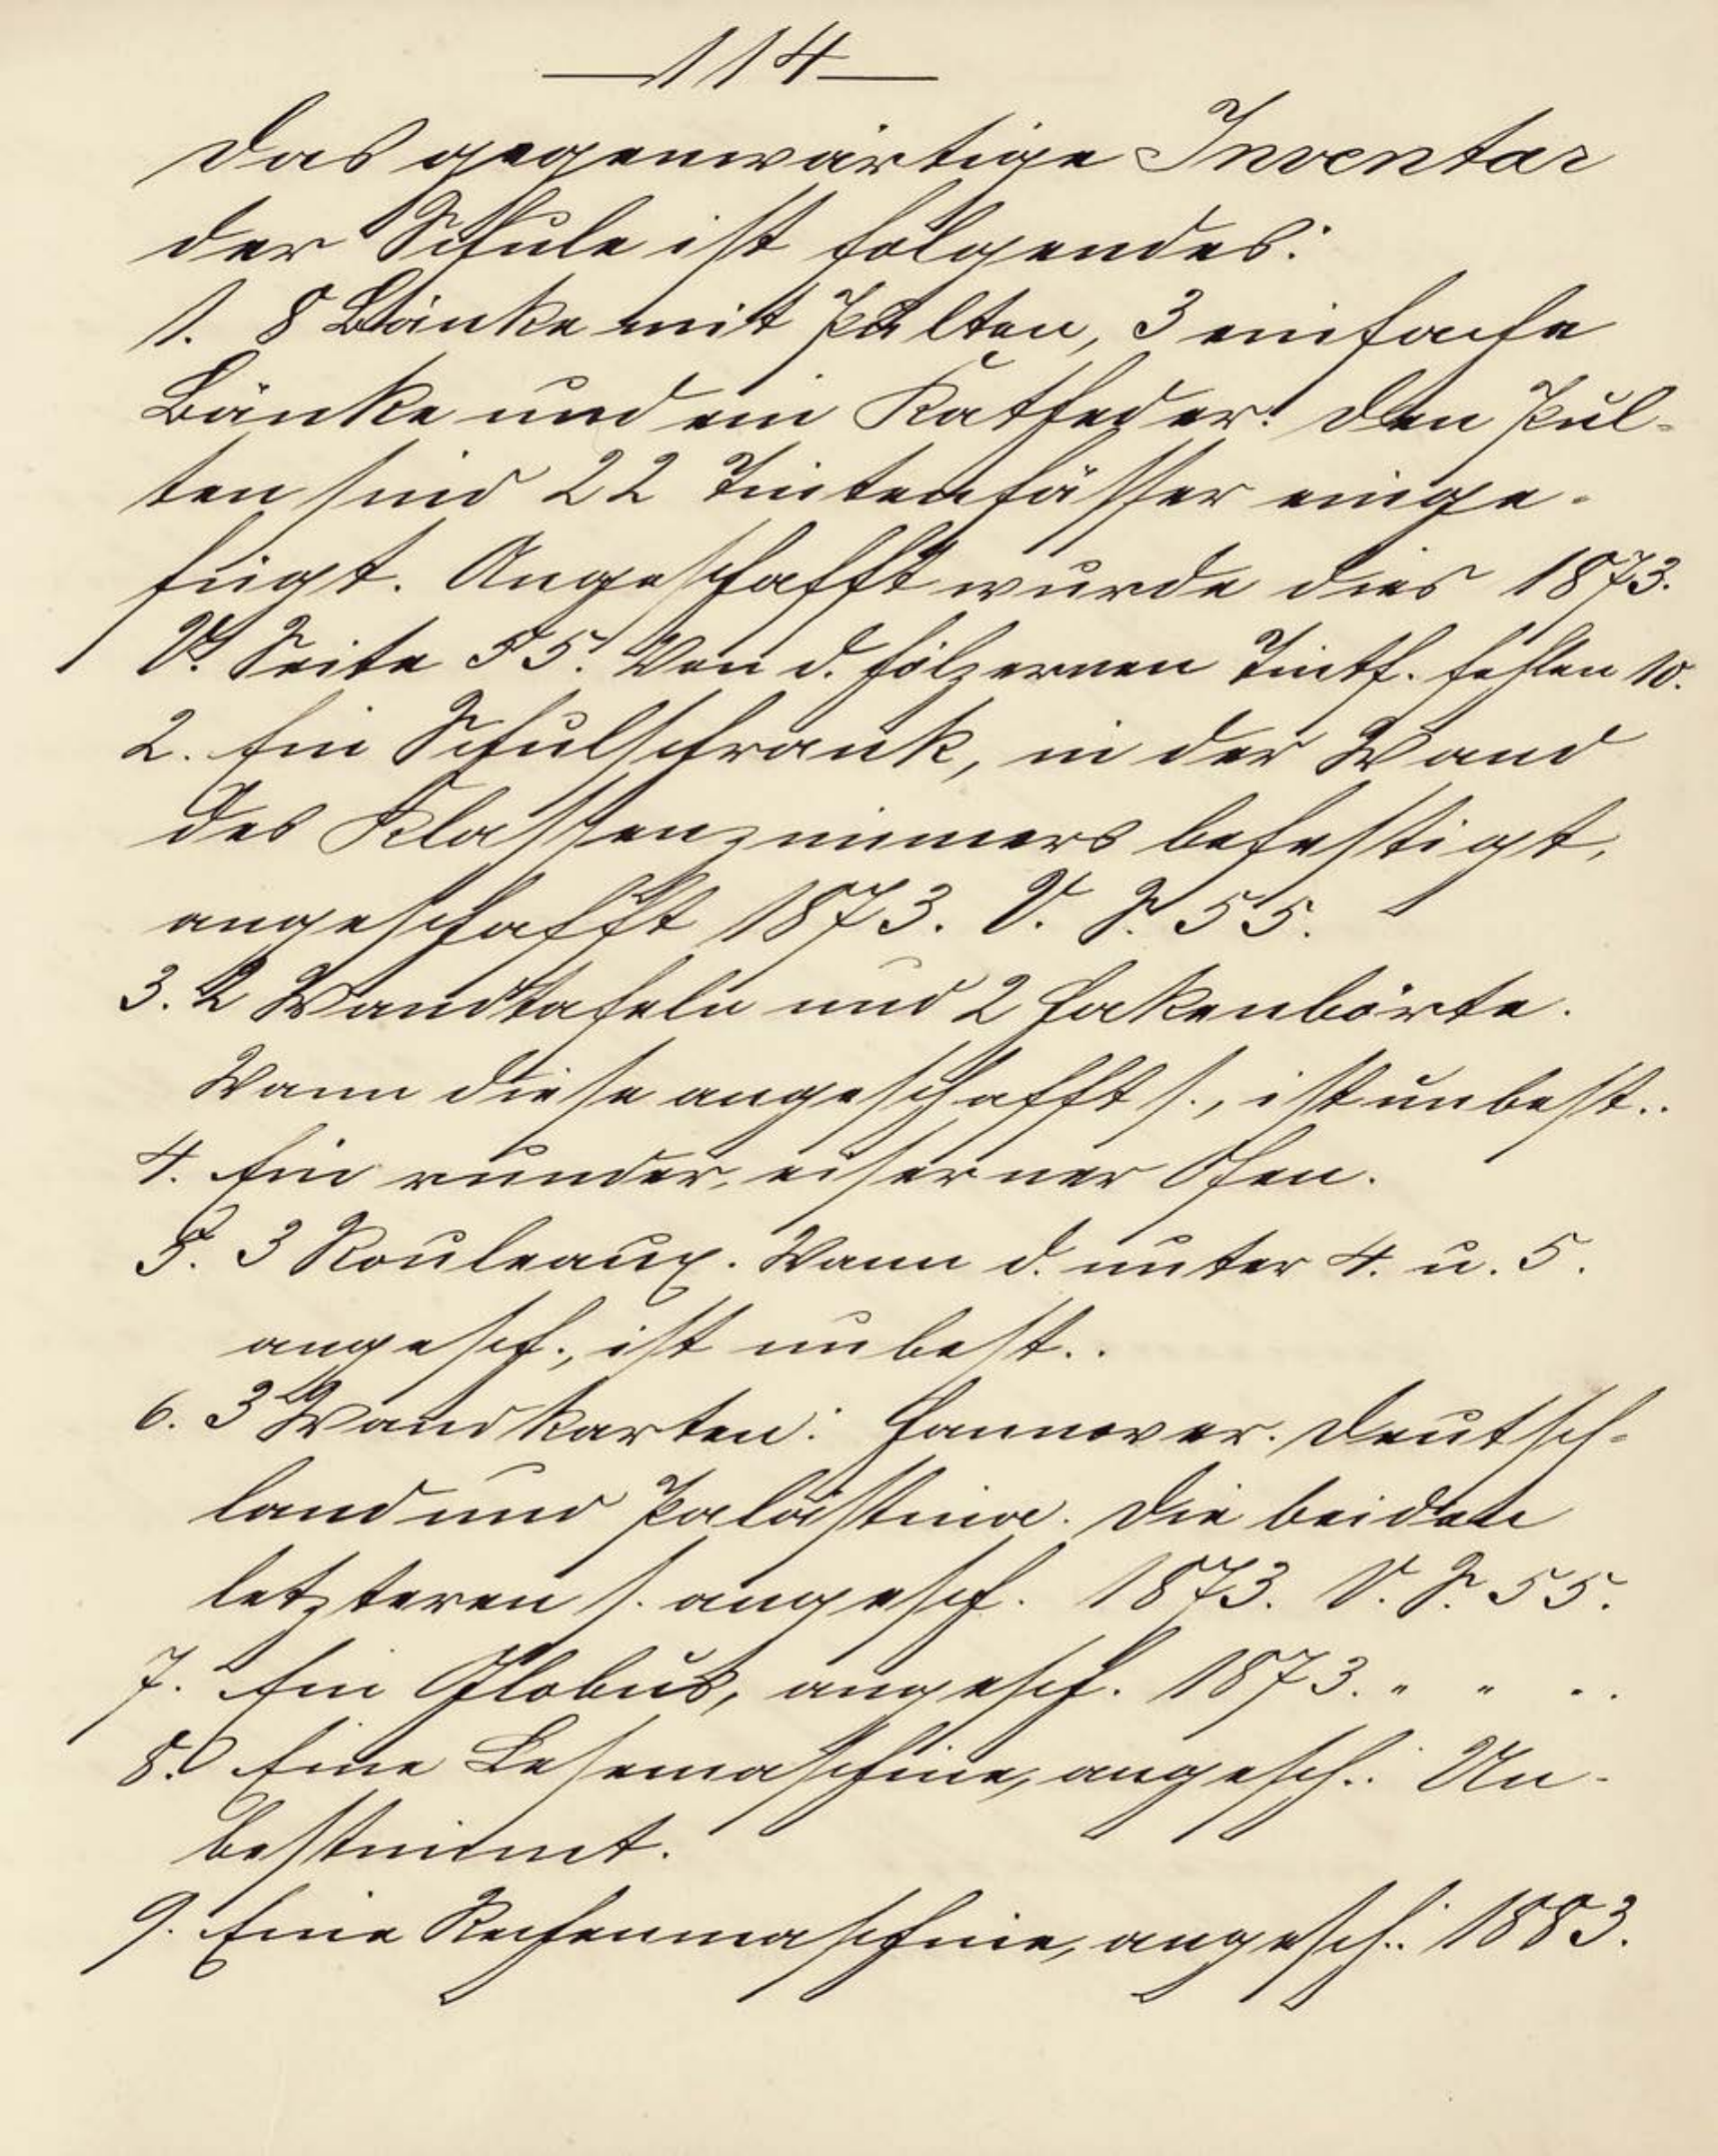 —114—
Das gegenwärtige Inventar
der Schule ist folgendes:
1. 8 Bänke mit Pulten, 3 einfache
Bänke und ein Katheder. Den Pul-
ten sind 22 Tintenfässer einge-
fügt. Angeschafft wurde dies 1873.
V. Seite 55. Von d. hölzernen Tintf. fehlen 10.
2. Ein Schulschrank, in der Wand
des Klassenzimmers befestigt,
angeschafft 1873. V. S. 55.
3. 2 Wandtafeln und 2 Hakenbörte.
Wann diese angeschafft s., ist unbest..
4. Ein runder, eiserner Ofen.
5. 3 Rouleaux. Wann d. unter 4. u. 5.
angesch., ist unbest..
6. 3 Wandkarten: Hannover. Deutsch-
land und Palästina. Die beiden
letzteren s. angesch. 1873. V. S. 55.
7. Ein Globus, angesch. 1873. " " . .
8. Eine Lesemaschine, angesch.: Un-
bestimmt.
9. Eine Rechenmaschine, angesch.: 1883.